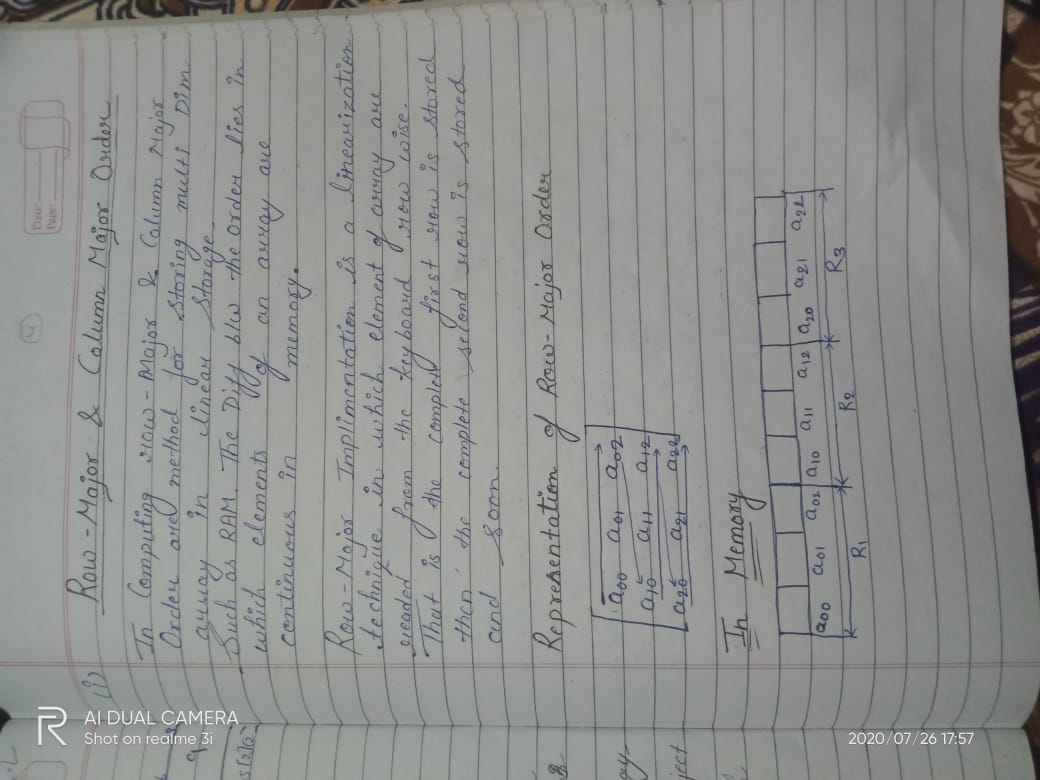 Date:
Page:
(4)
(i) Row-Major & Column Major Order
In Computing row-Major & Column Major
Order are method for storing multi Dim
array in linear storage
Such as RAM. The Diff b/w the order lies in
which elements of an array are
continuous in memory.
Row-Major Implimentation is a linearization
technique in which element of array are
readed from the keyboard row wise.
That is the complete first row is stored
then the complete second row is stored
and soon.
Representation of Row-Major Order
a00 a01 a02
a10 a11 a12
a20 a21 a22
In Memory
a00 a01 a02 a10 a11 a12 a20 a21 a22
R1 R2 R3
AI DUAL CAMERA
Shot on realme 3i
2020/07/26 17:57
ject